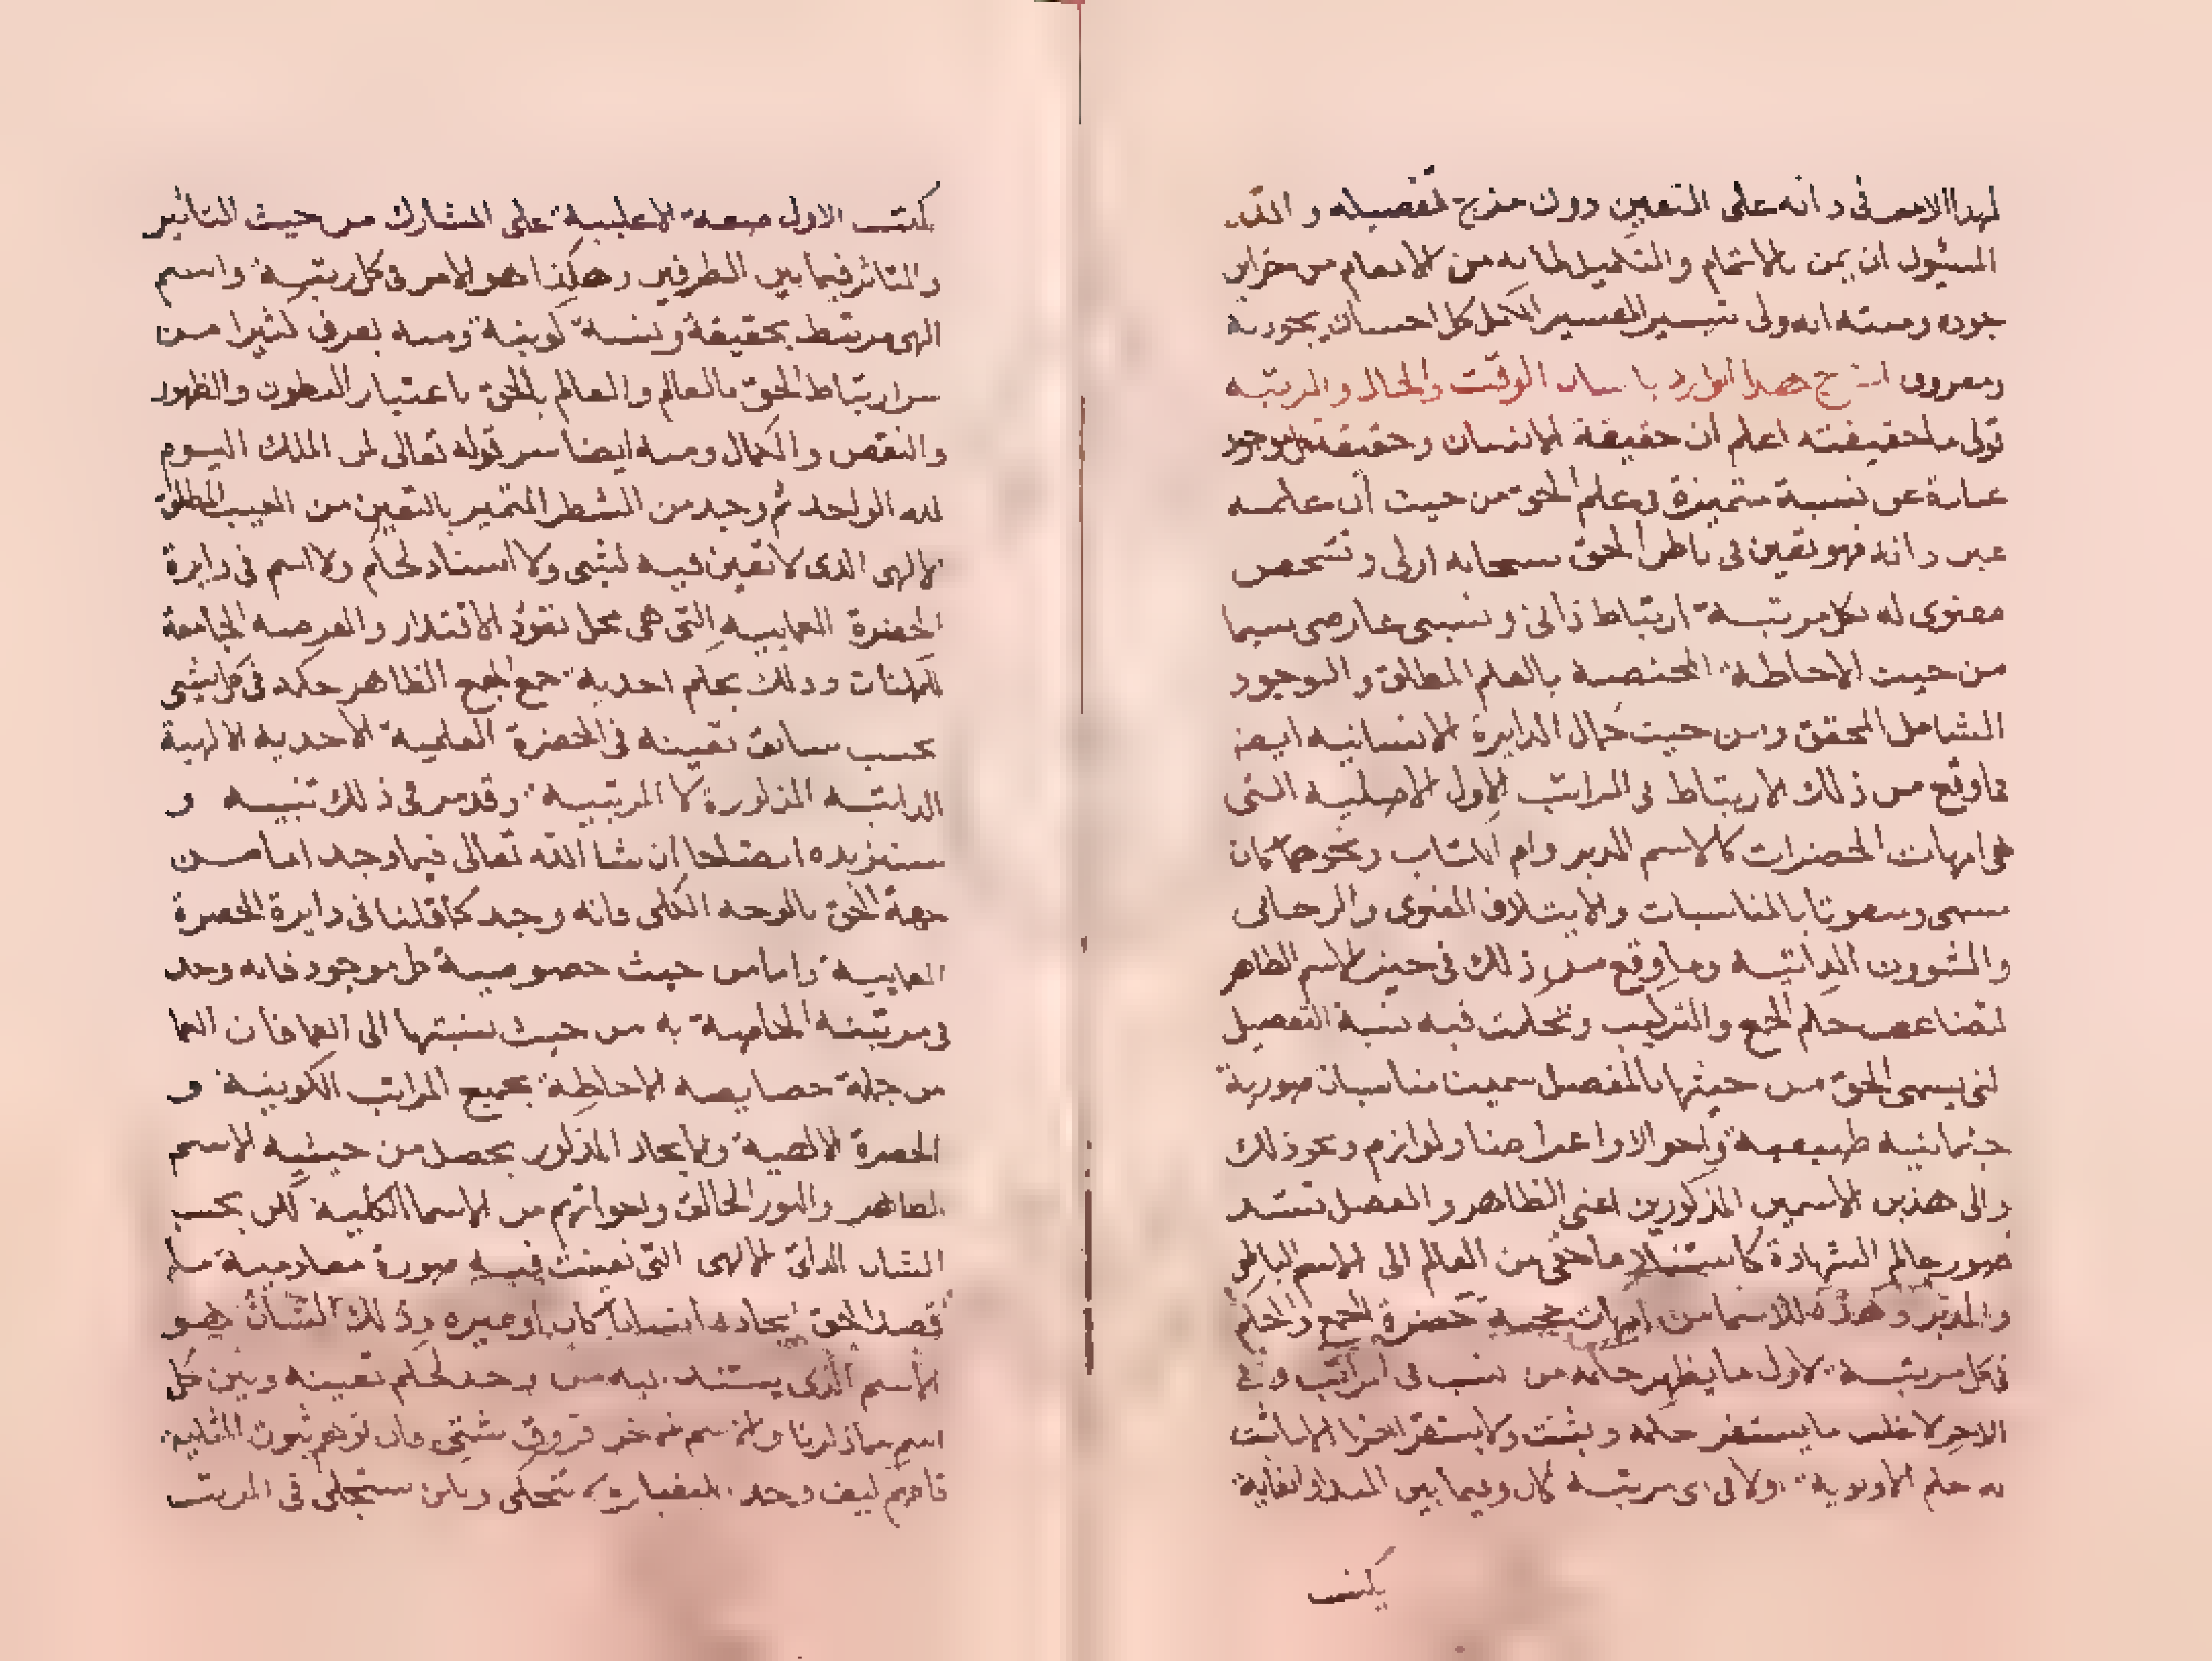 لهذا الامر فى ذاته على التعيين دون مزج تفصيله و الله
المسئول ان يمن بالاتمام والتكميل لما به من الانعام من خزاين
جوده ومنته انه ولى تيسير العسير الاكمل كل احسان بجوده
ومعروف هذا الوارد بلسان الوقت والحال والمرتبه
تولى ما حقيقته اعلم ان حقيقة الانسان وحقيقة كل موجود
عبارة عن نسبة متميزة فى علم الحق من حيث أن علمه
عين ذاته فهو تعين فى باطن الحق سبحانه ازلى و تشخص
معنوى له بكل مرتبة ارتباط ذاتى و نسبى عارضى سيما
من حيث الاحاطة المختصة بالعلم المطلق و الوجود
الشامل المحقق ومن حيث كمال الدايرة الانسانيه ايضا
فما وقع من ذلك الارتباط فى المراتب الاول الاصلية التى
هى امهات الحضرات كالاسم المدبر وام الكتاب ونحوهما كان
يسمى وسعوتا بالمناسبات والايتلاف المعنوى والروحانى
والشوون الذاتيه وما وقع من ذلك فى حيز الاسم الظاهر
لتضاعف حكم الجمع والتركيب وتحكمت فيه نسبة التفصيل
التى يسمى الحق من حيثها بالمفصل سميت مناسبات صورية
جثمانيه طبيعية واحوالا واعراضا ولوازم ونحو ذلك
والى هذين الاسمين المذكورين اعنى الظاهر و المفصل تستند
صور عالم الشهادة كاستناد ما خفى من العالم الى الاسم الباطن
والمدبر وهذه الاسما من امهات حضرة الجمع والحكم
فى كل مرتبة لاول ما يظهر حكمه من نسب فى المراتب و فى
الاخر لاغلب ما يستقر حكمه ويثبت ولا يستقر اخرا الا ما ثبت
له حكم الاولوية اولا فى اى مرتبة كان وفيما بين المبدا والغاية
يكتب
يكتب الاول صبغة الاغلبية على المشارك من حيث التاثير
والتاثر فيما بين الطرفين وهكذا هو الامر فى كل رتبة واسم
الهى مرتبط بحقيقة ونسبة كونية ومنه يعرف كثيرا من
سر ارتباط الحق بالعالم والعالم بالحق باعتبار البطون والظهور
والنقص والكمال ومنه ايضا سر قوله تعالى لمن الملك اليوم
لله الواحد ثم وجد من الشطر المتميز بالتعين من الغيب المطلق
الالهى الذى لا تعين فيه لشى ولا اسناد لحكم ولا اسم فى دايرة
الحضرة العمايية التى هى محل نفوذ الاقتدار والعرصه الجامعة
للممكنات وذلك بحكم احدية جمع الجمع الظاهر حكمه فى كل شى
بحسب سابق تعينه فى الحضرة العلمية الاحدية الالهية
الذاتية المذكورة لا المرتبية وقد مر فى ذلك تنبيه و
سنزيده ايضاحا ان شا الله تعالى فيما وجد اما من
جهة الحق بالوجه الكلى فانه وجد كما قلنا فى دايرة الحضرة
العمايية واما من حيث خصوصية كل موجود فانه وجد
فى مرتبته الخاصة به من حيث نسبتها الى العما فان العما
من جملة خصايصه الاحاطة بجميع المراتب الكونية و
الحضرة الالهية والايجاد المذكور يحصل من حيثية الاسم
الظاهر والنور الخالق واخواتهم من الاسما الكلية لكن بحسب
الشان الذاتى الالهى التى تعينت فيه صورة معلومية ما
قصد الحق ايجاده انسانا كان او غيره وذلك الشان هو
الاسم الذى يستند اليه من وجد لحكم تعينه وبين كل
اسم مما ذكرنا والاسم فروق شتى وان توهم ثبوت المثلية
فافهم كيف وجد سنجلى فى المرتب